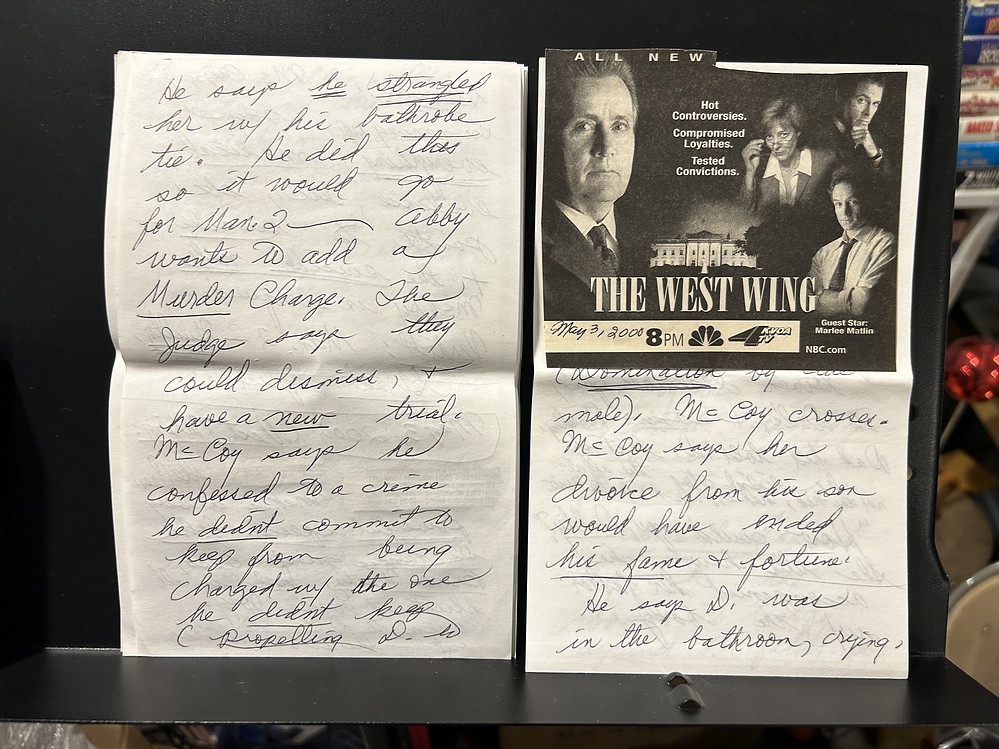 He says he strangled
her w/ his bathrobe
tie. He did this
so it would go
for Man. 2 — Abby
wants to add a
Murder Charge. The
Judge says they
could dismiss, &
have a new trial.
McCoy says he
confessed to a crime
he didnt commit to
keep from being
charged w/ the one
he didnt keep
( propelling D. to
ALL NEW
Hot
Controversies.
Compromised
Loyalties.
Tested
Convictions.
THE WEST WING
Guest Star:
Marlee Matlin
May 3, 2000 8PM 4 KNOA TV
NBC.com
(Domination by
male). McCoy crosses.
McCoy says her
divorce from his son
would have ended
his fame & fortune.
He says D. was
in the bathroom, crying.